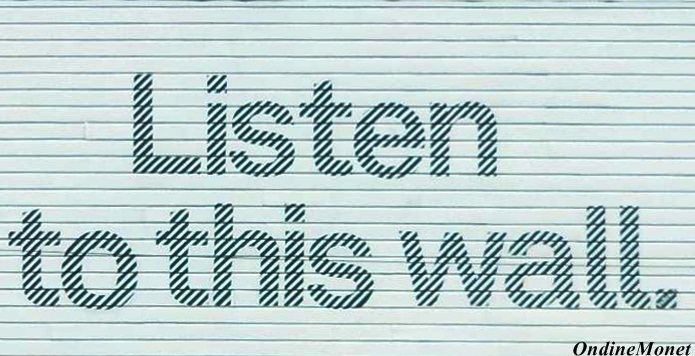 Listen
to this wall.
OndineMonet